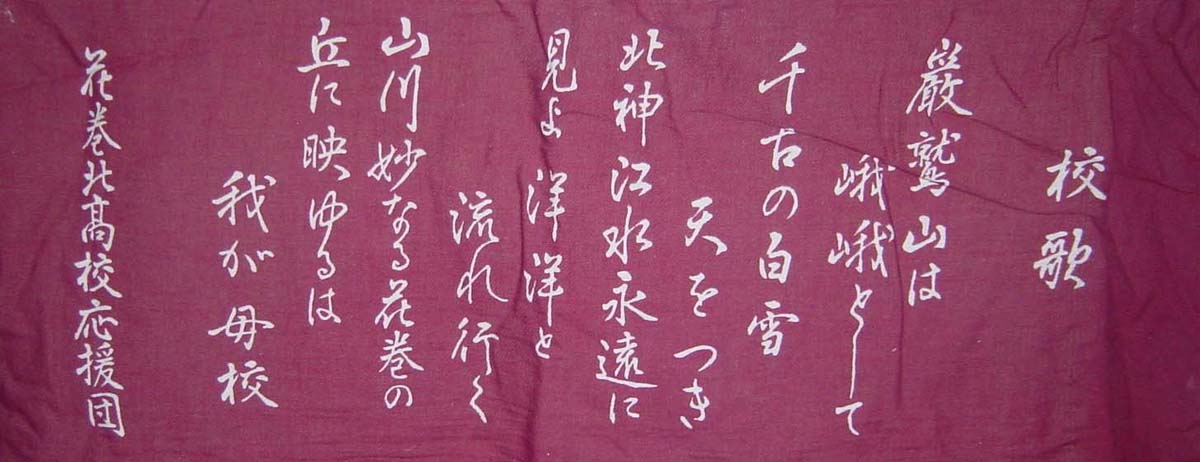 校歌
巖鷲山は
峨峨として
千古の白雪
天をつき
北神江水永遠に
見よ洋洋と
流れ行く
山川妙なる花巻の
丘に映ゆるは
我が母校
花巻北高校応援団